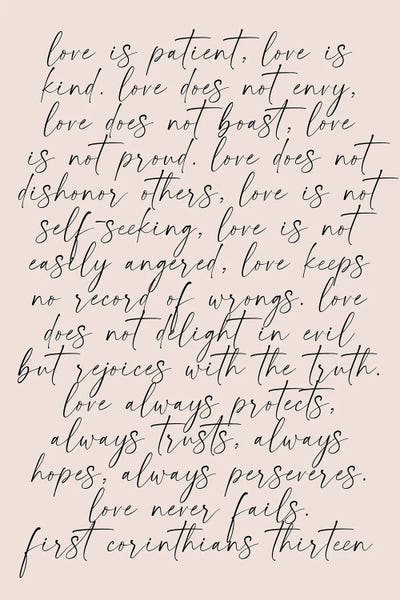 love is patient, love is
kind. love does not envy,
love does not boast, love
is not proud. love does not
dishonor others, love is not
self-seeking, love is not
easily angered, love keeps
no record of wrongs. love
does not delight in evil
but rejoices with the truth.
love always protects,
always trusts, always
hopes, always perseveres.
love never fails.
first corinthians thirteen